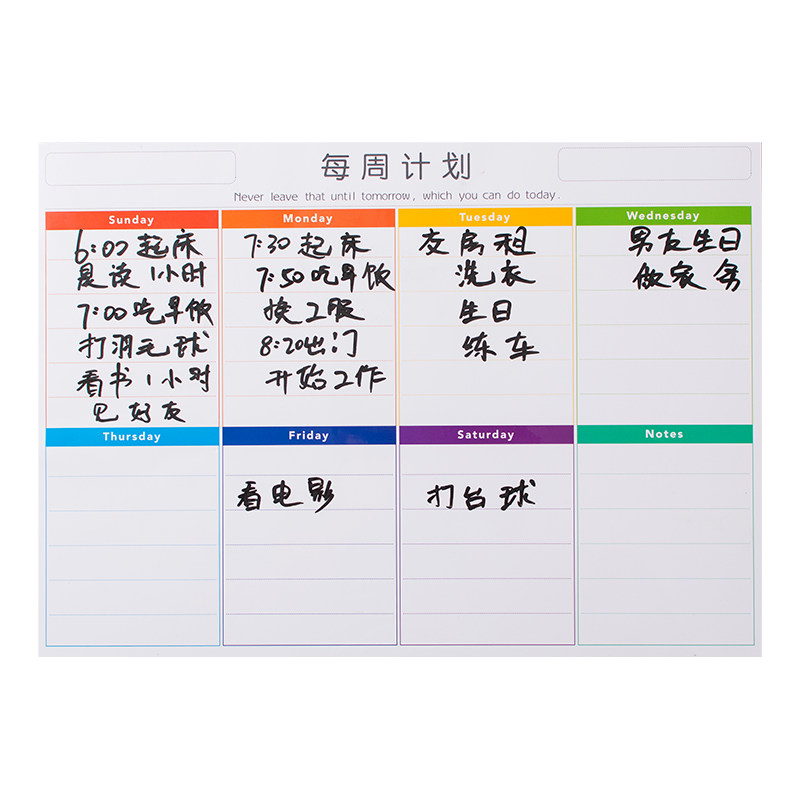 每周计划
Never leave that until tomorrow, which you can do today.
Sunday
6:00起床
晨读1小时
7:00吃早饭
打羽毛球
看书1小时
见好友
Monday
7:30起床
7:50吃早饭
换工服
8:20出门
开始工作
Tuesday
交房租
洗衣
生日
练车
Wednesday
男友生日
做家务
Thursday
Friday
看电影
Saturday
打台球
Notes